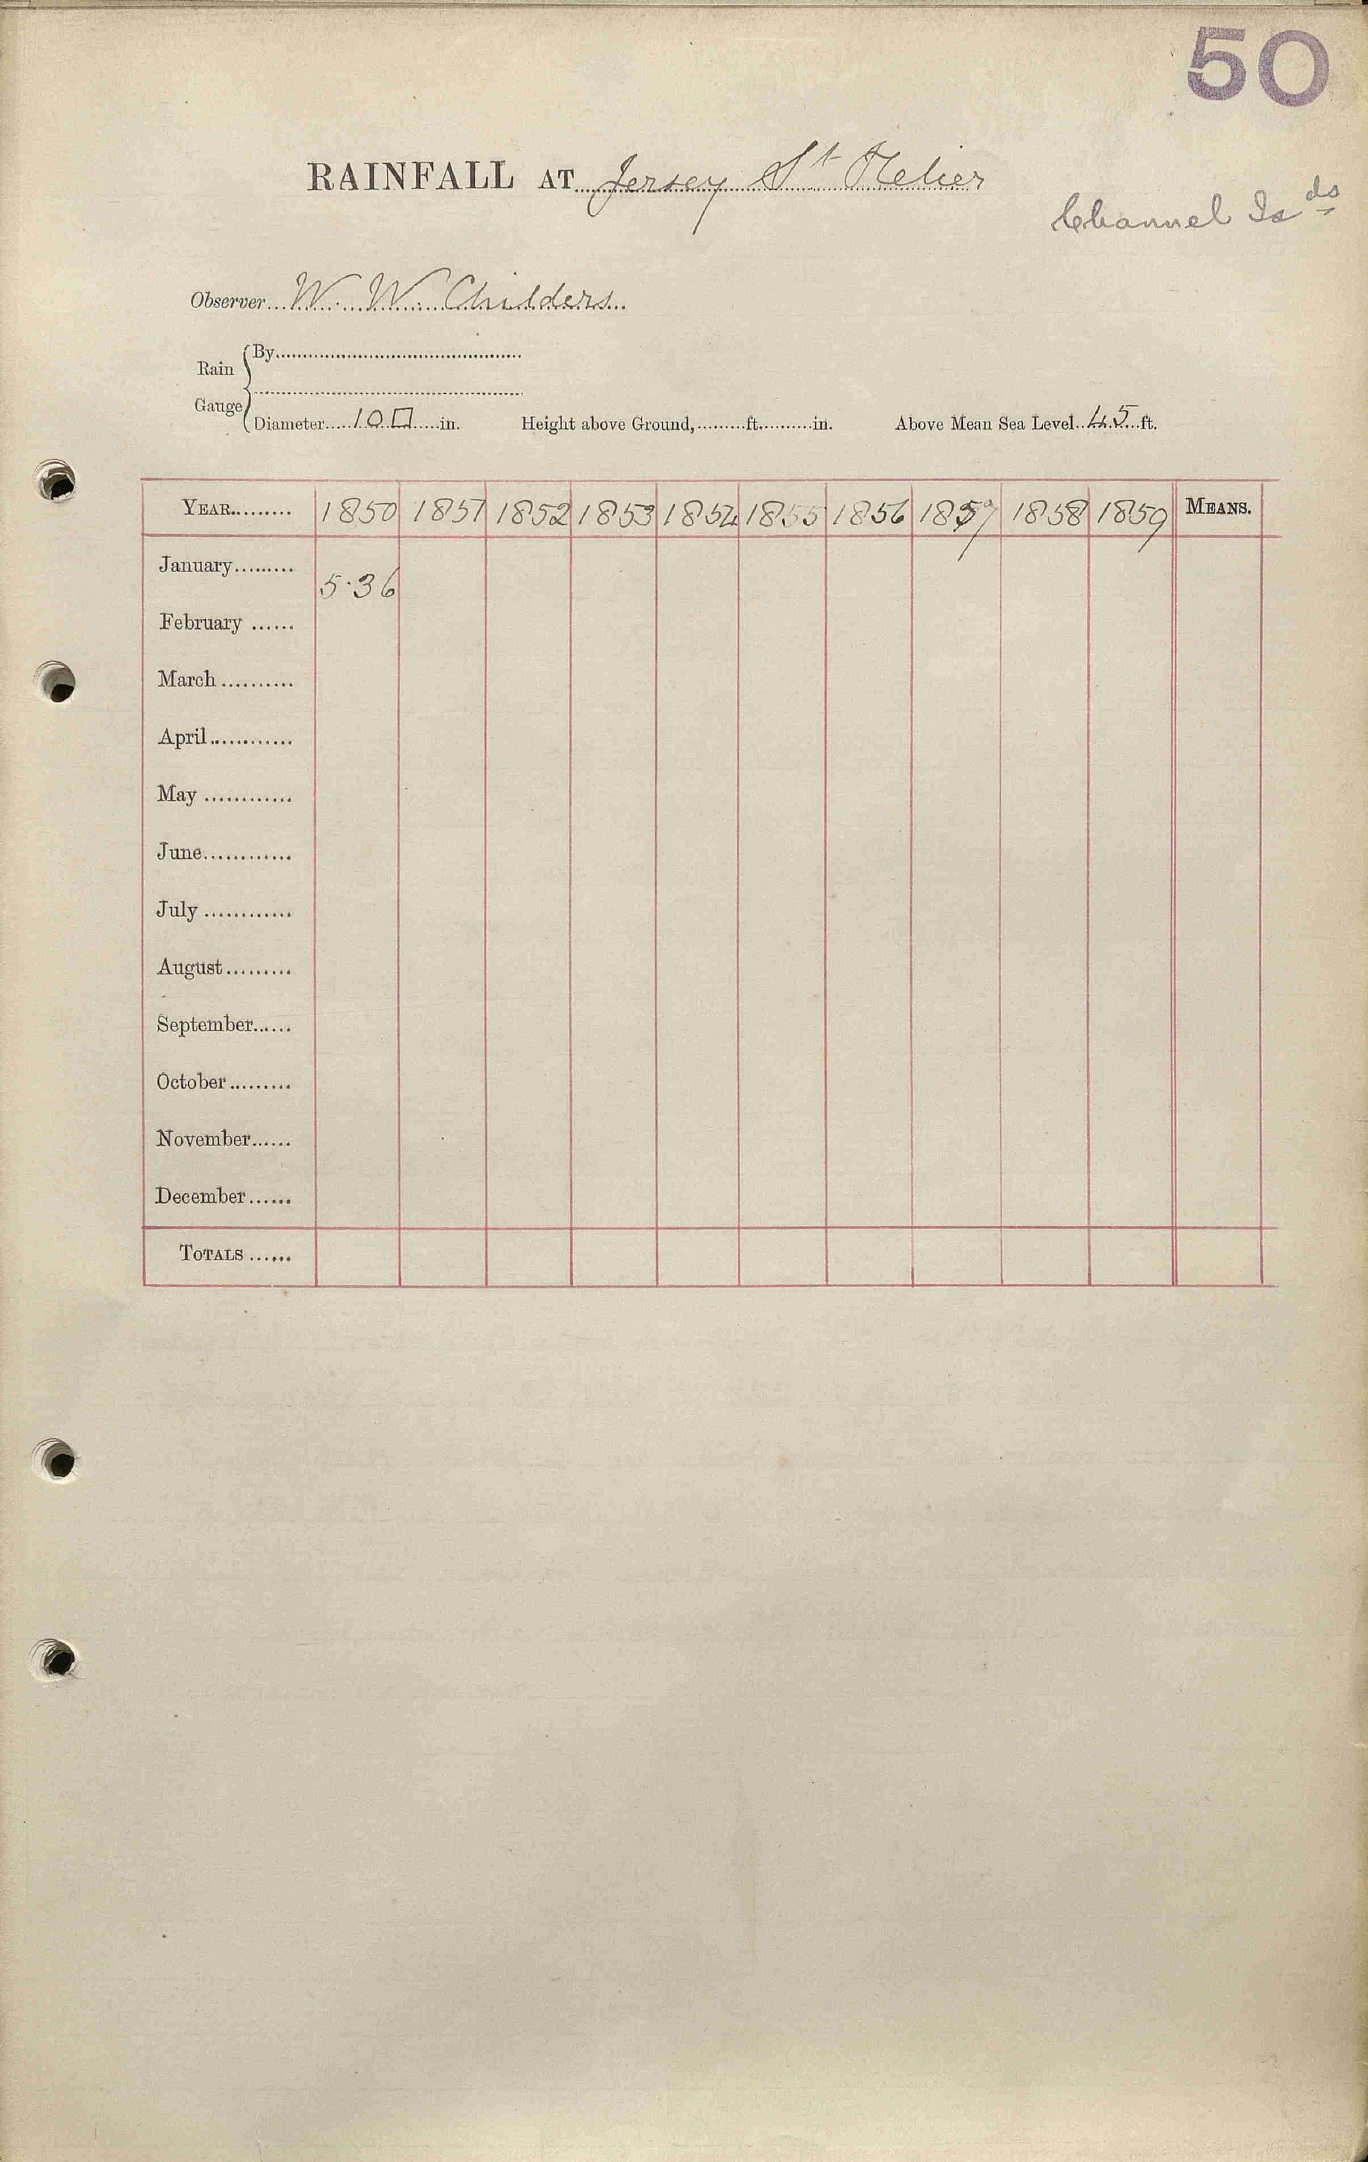 50
RAINFALL AT Jersey St Helier
Channel Isds
Observer W. W. Childers
Rain Gauge { By
Diameter 10 □ in. Height above Ground, ft. in. Above Mean Sea Level 45 ft.
YEAR 1850 1851 1852 1853 1854 1855 1856 1857 1858 1859 MEANS.
January 5.36
February
March
April
May
June
July
August
September
October
November
December
TOTALS